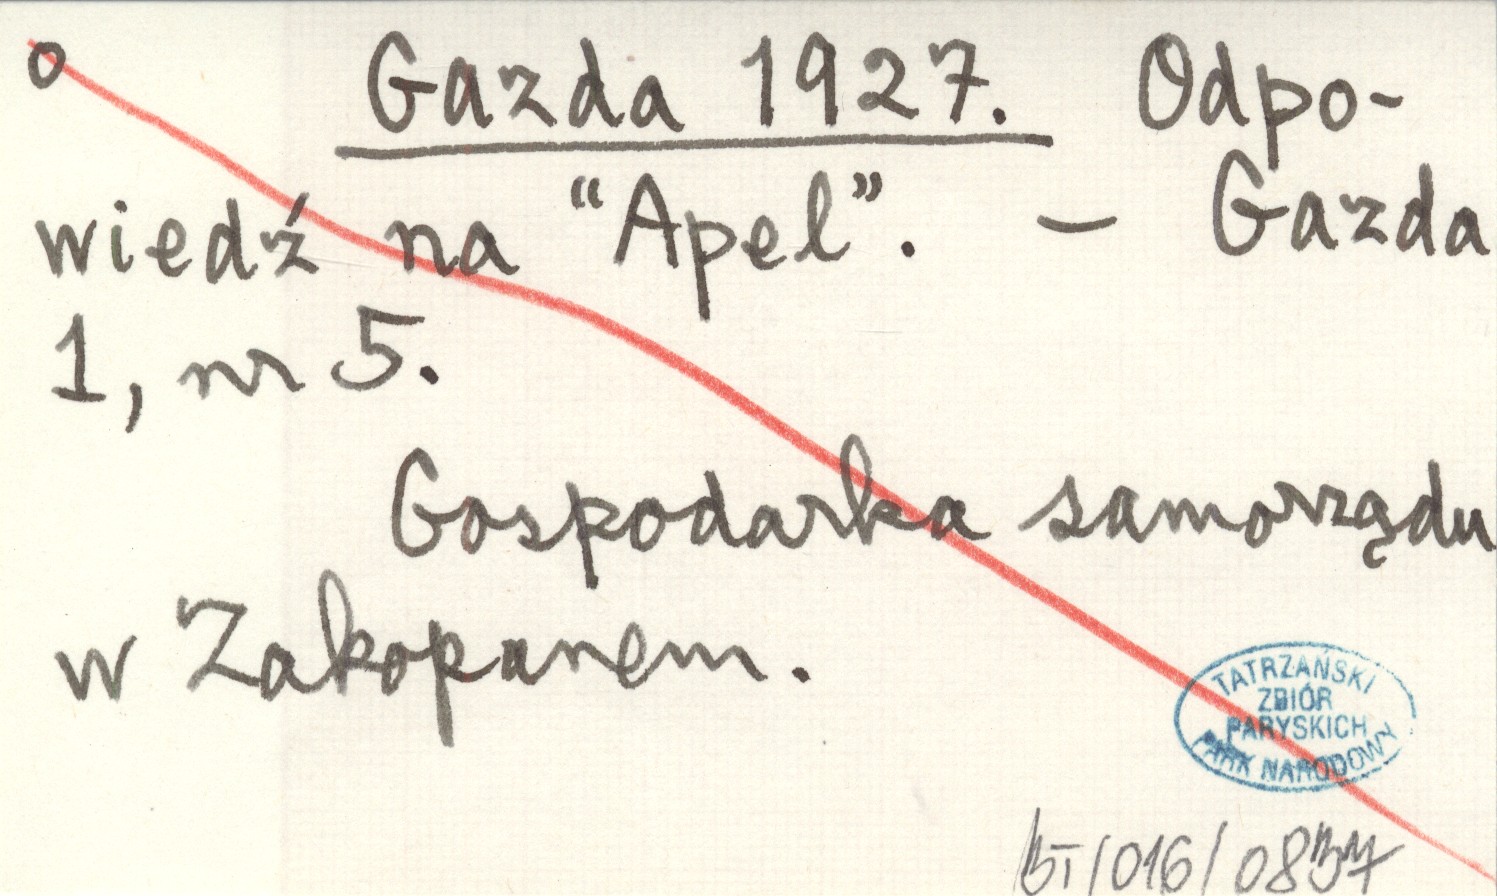 o Gazda 1927. Odpo-
wiedź na "Apel". - Gazda
1, nr 5.
Gospodarka samorządu
w Zakopanem.
TATRZAŃSKI
ZBIÓR
PARYSKICH
PARK NARODOWY